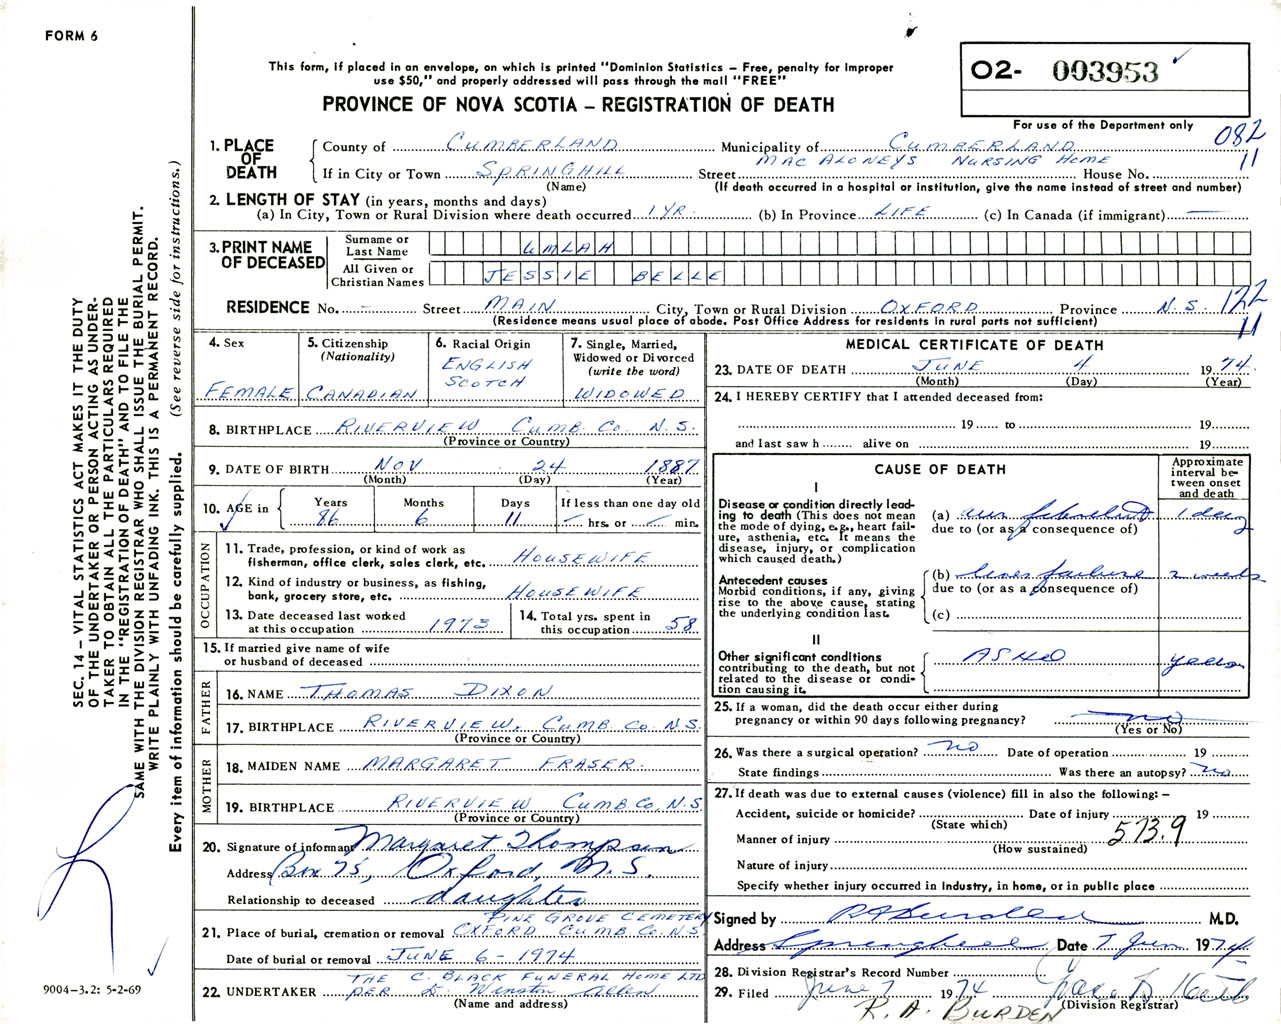 FORM 6
This form, if placed in an envelope, on which is printed "Dominion Statistics – Free, penalty for improper
use $50," and properly addressed will pass through the mail "FREE"
PROVINCE OF NOVA SCOTIA – REGISTRATION OF DEATH
O2- 003953
For use of the Department only
082
11
1. PLACE OF DEATH
County of CUMBERLAND Municipality of CUMBERLAND
MAC ALONEYS NURSING HOME
If in City or Town SPRINGHILL Street House No.
(Name) (If death occurred in a hospital or institution, give the name instead of street and number)
2. LENGTH OF STAY (in years, months and days)
(a) In City, Town or Rural Division where death occurred 1 YR. (b) In Province LIFE (c) In Canada (if immigrant) —
3. PRINT NAME OF DECEASED
Surname or Last Name UMLAH
All Given or Christian Names JESSIE BELLE
RESIDENCE No. – Street MAIN City, Town or Rural Division OXFORD Province N.S.
122
11
(Residence means usual place of abode. Post Office Address for residents in rural parts not sufficient)
4. Sex FEMALE
5. Citizenship (Nationality) CANADIAN
6. Racial Origin ENGLISH SCOTCH
7. Single, Married, Widowed or Divorced (write the word) WIDOWED
8. BIRTHPLACE RIVERVIEW CUMB. CO. N.S.
(Province or Country)
9. DATE OF BIRTH NOV 24 1887
(Month) (Day) (Year)
10. AGE in Years 86 Months 6 Days 11 If less than one day old – hrs. or – min.
OCCUPATION
11. Trade, profession, or kind of work as
fisherman, office clerk, sales clerk, etc. HOUSEWIFE
12. Kind of industry or business, as fishing,
bank, grocery store, etc. HOUSEWIFE
13. Date deceased last worked
at this occupation 1973
14. Total yrs. spent in
this occupation 58
15. If married give name of wife
or husband of deceased
FATHER
16. NAME THOMAS DIXON
17. BIRTHPLACE RIVERVIEW, CUMB. CO. N.S.
(Province or Country)
MOTHER
18. MAIDEN NAME MARGARET FRASER
19. BIRTHPLACE RIVERVIEW CUMB. CO. N.S.
(Province or Country)
20. Signature of informant Margaret Thompson
Address Box 75, Oxford, N.S.
Relationship to deceased daughter
PINE GROVE CEMETERY
21. Place of burial, cremation or removal OXFORD CUMB. CO. N.S.
Date of burial or removal JUNE 6 - 1974
THE C. BLACK FUNERAL HOME LTD
22. UNDERTAKER PER D. Winston Allen
(Name and address)
MEDICAL CERTIFICATE OF DEATH
23. DATE OF DEATH JUNE 4 1974
(Month) (Day) (Year)
24. I HEREBY CERTIFY that I attended deceased from:
19 to 19
and last saw h alive on 19
CAUSE OF DEATH
Approximate interval between onset and death
I
Disease or condition directly leading
to death (This does not mean
the mode of dying, e.g., heart failure,
asthenia, etc. It means the
disease, injury, or complication
which caused death.)
(a) 1 day
due to (or as a consequence of)
Antecedent causes
Morbid conditions, if any, giving
rise to the above cause, stating
the underlying condition last.
(b) liver failure 2 weeks
due to (or as a consequence of)
(c)
II
Other significant conditions
contributing to the death, but not
related to the disease or condition
causing it.
ASHD years
25. If a woman, did the death occur either during
pregnancy or within 90 days following pregnancy? no
(Yes or No)
26. Was there a surgical operation? no Date of operation 19
State findings Was there an autopsy? no
27. If death was due to external causes (violence) fill in also the following: –
Accident, suicide or homicide? Date of injury 19
(State which)
573.9
Manner of injury
(How sustained)
Nature of injury
Specify whether injury occurred in Industry, in home, or in public place
Signed by R A Burden M.D.
Address Springhill Date 7 Jun 1974
28. Division Registrar's Record Number
29. Filed June 7 1974
(Division Registrar)
R. A. BURDEN
SEC. 14 – VITAL STATISTICS ACT MAKES IT THE DUTY
OF THE UNDERTAKER OR PERSON ACTING AS UNDERTAKER
TO OBTAIN ALL THE PARTICULARS REQUIRED
IN THE "REGISTRATION OF DEATH" AND TO FILE THE
SAME WITH THE DIVISION REGISTRAR WHO SHALL ISSUE THE BURIAL PERMIT.
WRITE PLAINLY WITH UNFADING INK. THIS IS A PERMANENT RECORD.
Every item of information should be carefully supplied. (See reverse side for instructions.)
9004-3.2: 5-2-69